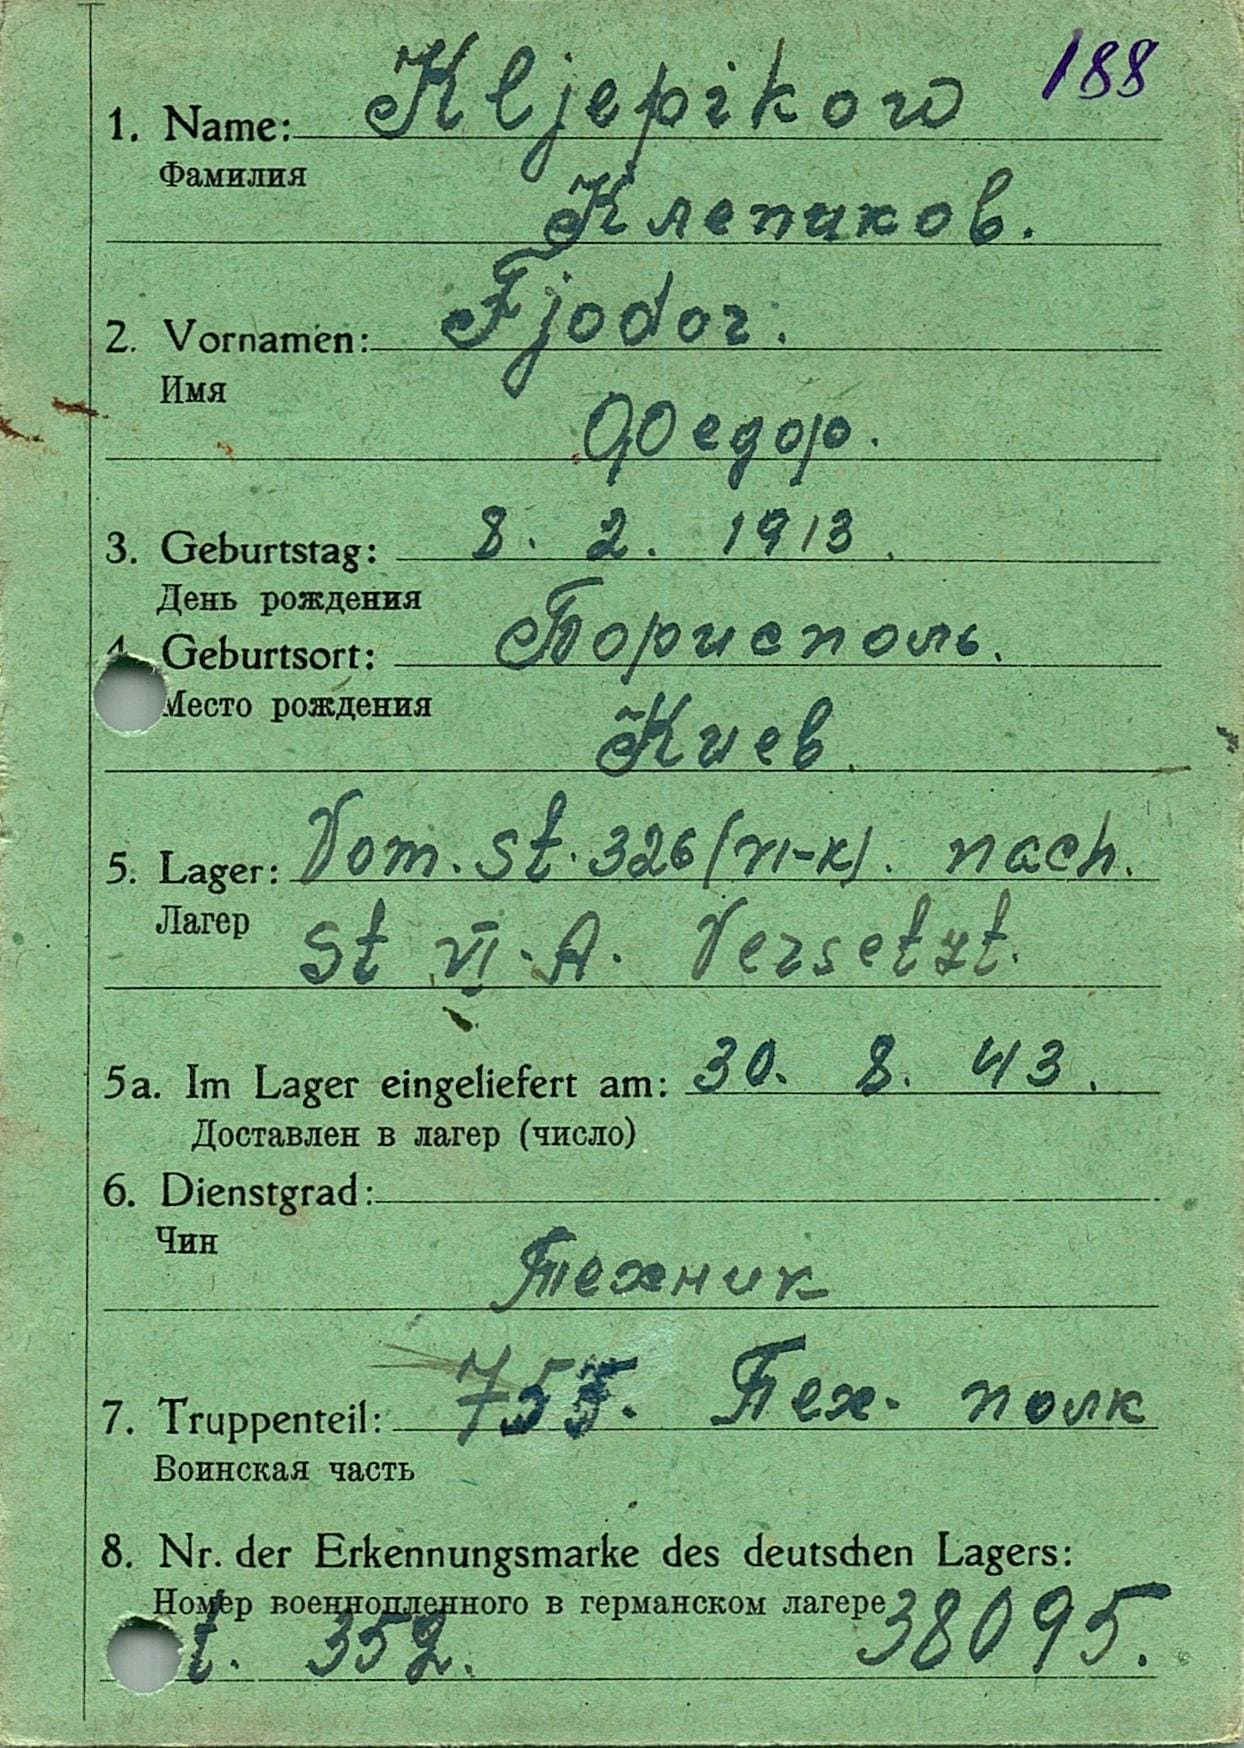 188
1. Name: Kljepikow
Фамилия
Клепиков.
2. Vornamen: Fjodor.
Имя
Федор.
3. Geburtstag: 8. 2. 1913.
День рождения
4. Geburtsort: Борисполь.
Место рождения
Киев.
5. Lager: Vom. St. 326 (VI-K). nach.
Лагер
St VI. A. Versetzt.
5a. Im Lager eingeliefert am: 30. 8. 43.
Доставлен в лагер (число)
6. Dienstgrad:
Чин
Техник
7. Truppenteil: Тех. полк
Воинская часть
8. Nr. der Erkennungsmarke des deutschen Lagers:
Номер военнопленного в германском лагере
t. 352. 38095.